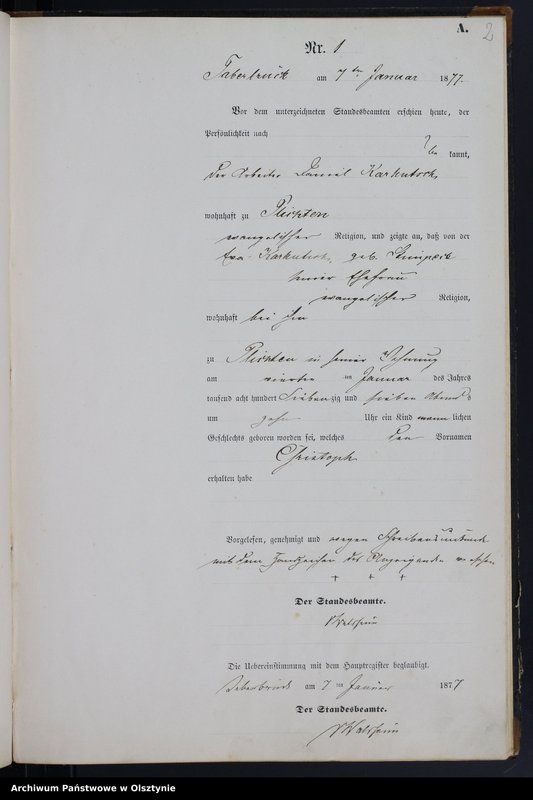 A.
2
Nr. 1
Taberbrück am 7ten Januar 1877.
Vor dem unterzeichneten Standesbeamten erschien heute, der
Persönlichkeit nach
be kannt,
der Arbeiter Daniel Karkutsch,
wohnhaft zu Plichten
evangelischer Religion, und zeigte an, daß von der
Eva Karkutsch, geb.
seiner Ehefrau
evangelischer Religion,
wohnhaft bei ihm
zu Plichten in seiner Wohnung
am vierten ten Januar des Jahres
tausend acht hundert Sieben zig und sieben Abends
um zehn Uhr ein Kind männ lichen
Geschlechts geboren worden sei, welches den Vornamen
Christoph
erhalten habe
Vorgelesen, genehmigt und wegen Schreibensunkunde
mit dem Handzeichen des Anzeigenden versehen
+ + +
Der Standesbeamte.
Die Uebereinstimmung mit dem Hauptregister beglaubigt.
Taberbrück am 7 ten Januar 1877
Der Standesbeamte.
Archiwum Państwowe w Olsztynie